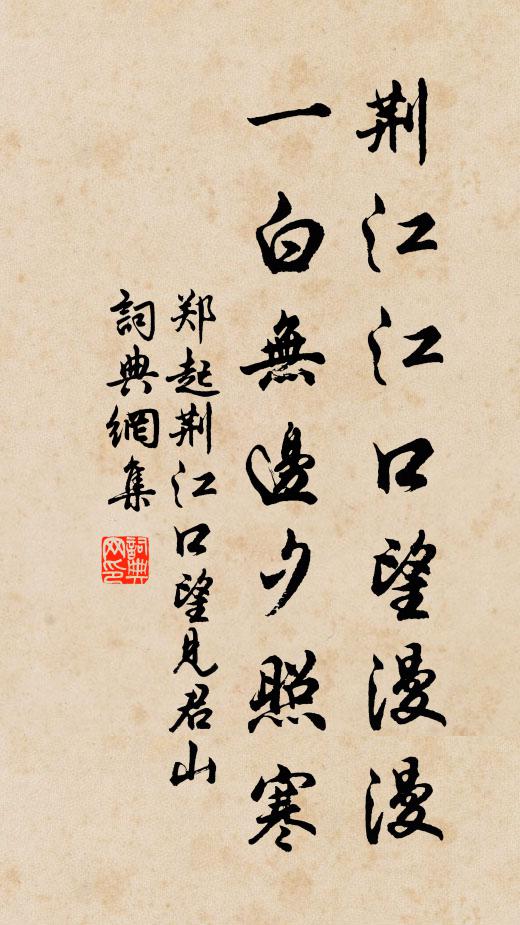 荆江江口望漫漫
一白無邊夕照寒
郑起荆江口望見君山
詞典網集
詞典网印